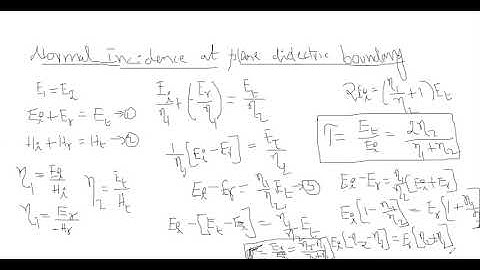 Normal Incidence at plane dielectric boundary
E₁ = E₂
Ei + Er = Et → ①
Hi + Hr = Ht → ②
η₁ = Ei/Hi
η₂ = Et/Ht
η₁ = Er/-Hr
Ei/η₁ + (-Er/η₁) = Et/η₂
1/η₁ [Ei - Er] = Et/η₂
Ei - Er = η₁/η₂ Et → ③
Ei - [Et - Ei] = η₁/η₂ Et
2Ei = (η₁/η₂ + 1) Et
T = Et/Ei = 2η₂/η₁+η₂
Ei - Er = η₁/η₂ [Ei + Er]
Ei [1 - η₁/η₂] = Er [1 + η₁/η₂]
Ei [η₂ - η₁] = Er [η₂ + η₁]